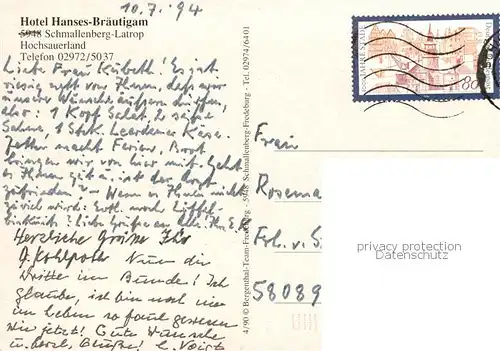 10.7.94
Hotel Hanses-Bräutigam
5948 Schmallenberg-Latrop
Hochsauerland
Telefon 02972/5037
Liebe Frau Kübeth! Es ist
riesig nett von Ihnen, daß wir
unsere Wünsche äußern dürfen,
also: 1 Kopf Salat, 2 süße
Sahne, 1 Stck. Leerdamer Käse.
macht Ferien, Brot
bringen wir von hier mit. Geht
es Ihnen gut u. ist der Arzt
zufrieden? Wenn es Ihnen nicht
zuviel wird: Evtl. noch Löffel-
Liebe Grüße an alle. Ihr E.K.
Herzliche Grüße Ihr
G. Kohlpoth Nun die
Dritte im Bunde! Ich
glaube, ich bin noch nie
im Leben so faul gewesen
wie jetzt! Gute Wünsche
u. herzl. Grüße! L. Voigt
4/90 © Bergenthal-Team-Fredeburg - 5948 Schmallenberg-Fredeburg - Tel. 02974/6401
JAHRE STADE
80
Frau
Rosema
Frh. v. S
58089
privacy protection
Datenschutz